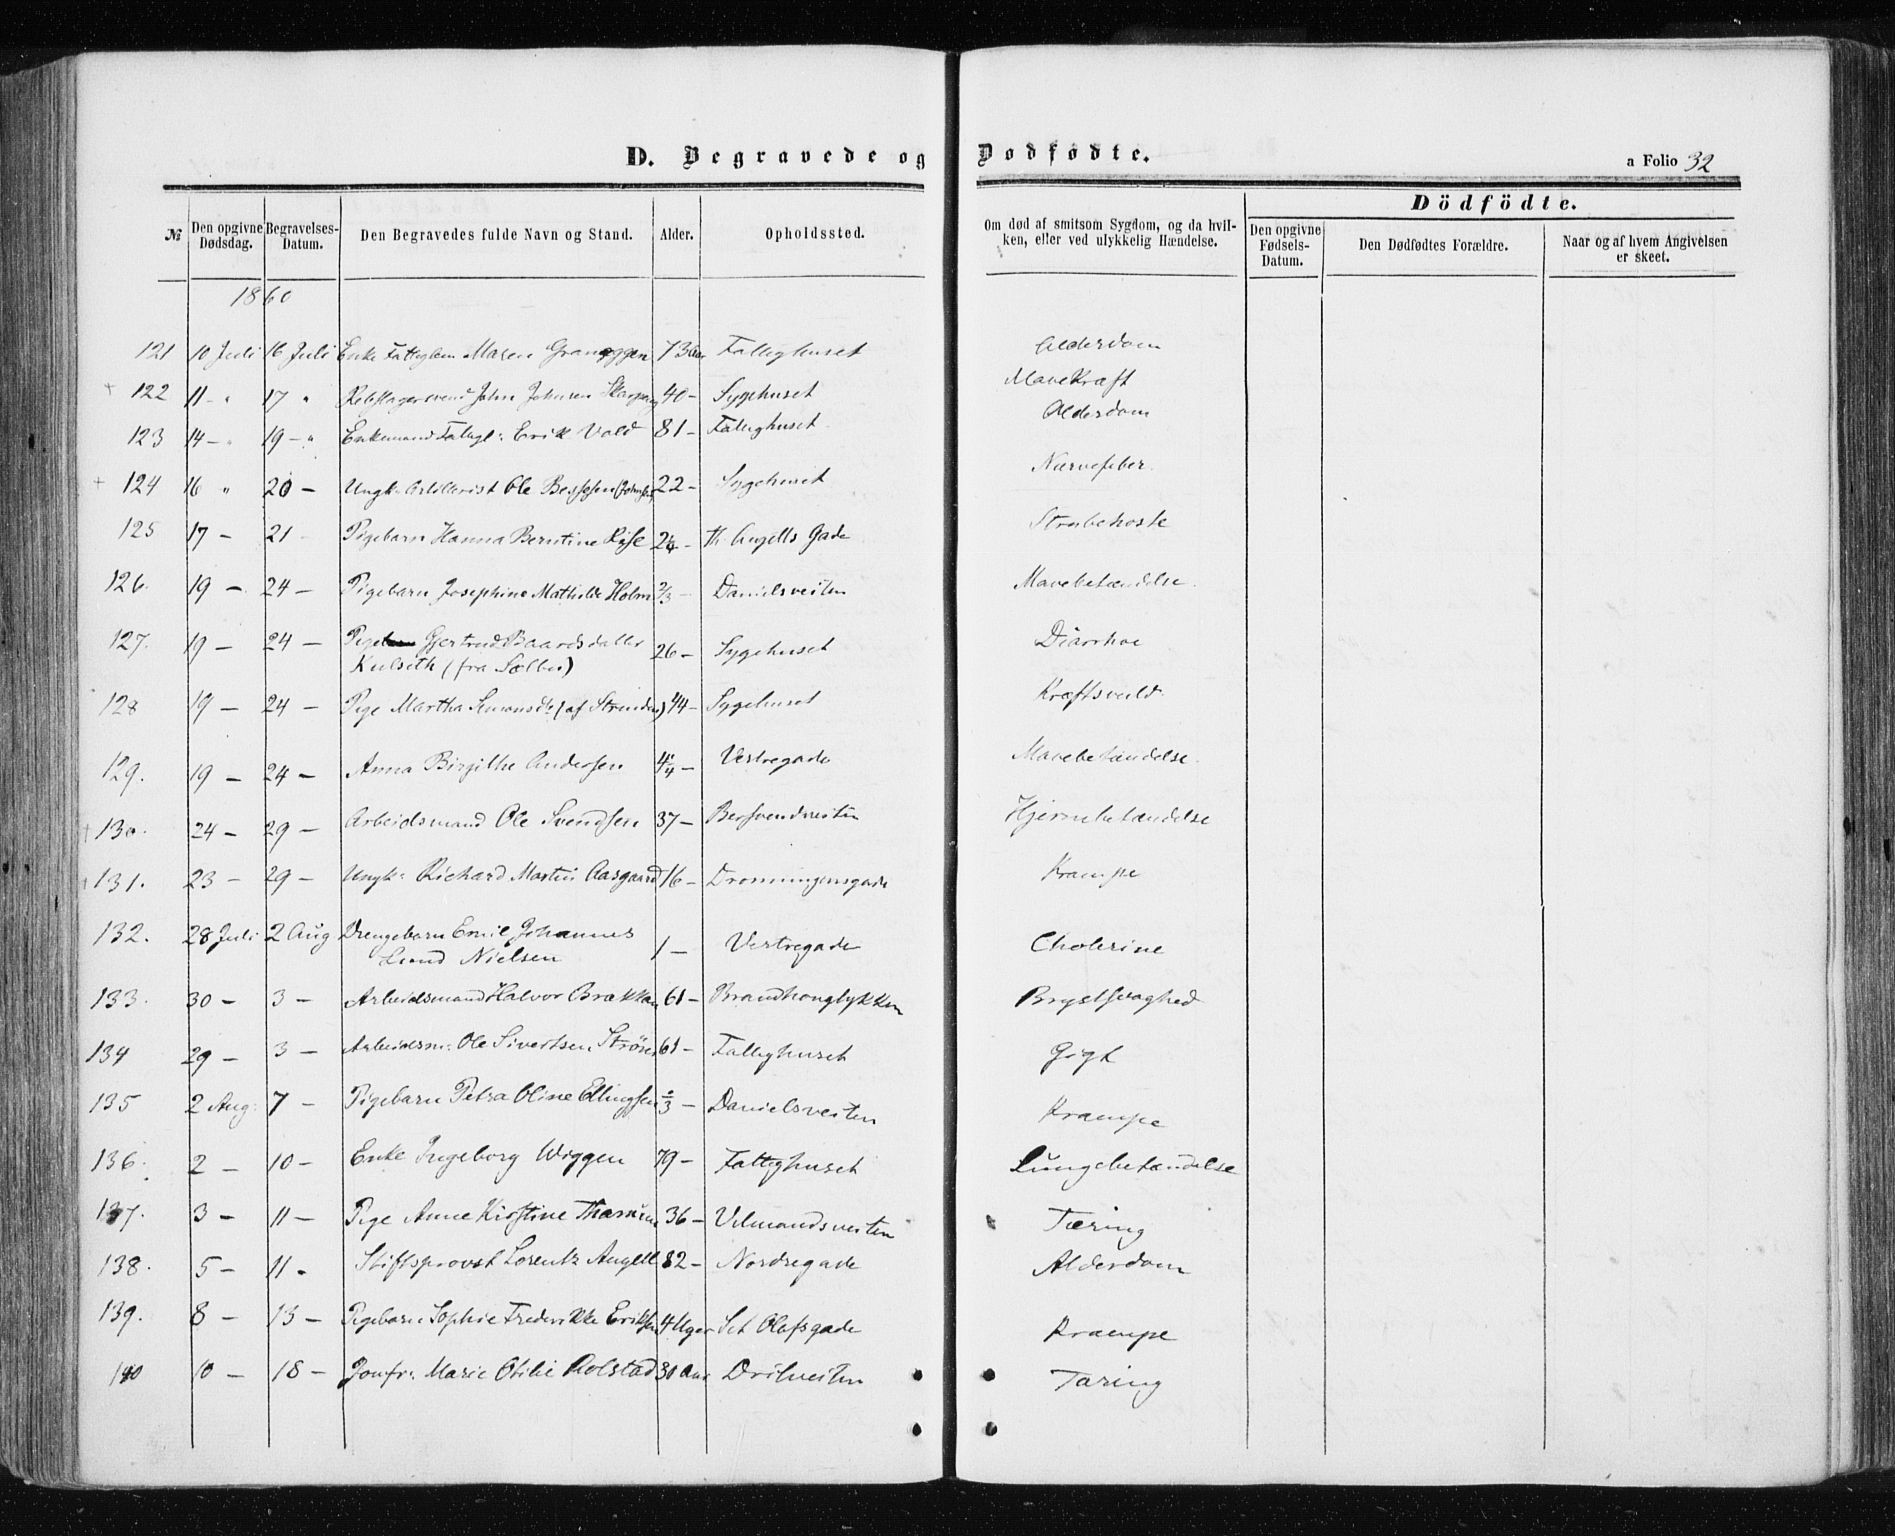 D. Begravede og Dødfødte.
a Folio 32
№ | Den opgivne Dødsdag. | Begravelses-Datum. | Den Begravedes fulde Navn og Stand. | Alder. | Opholdssted. | Om død af smitsom Sygdom, og da hvilken, eller ved ulykkelig Hændelse. | Dödfödte. Den opgivne Fødsels-Datum. | Den Dødfødtes Forældre. | Naar og af hvem Angivelsen er skeet.
1860
121 10 Juli 16 Juli Enke Fattiglem Maren 73 Aar Fattighuset Alderdom
+ 122 11 - " 17 " Rebslagersvend John Johnsen 40 - Sygehuset Mavekræft
123 14 - " 19 - " Enkemand Fattigl: Erik Vold 81 - Fattighuset Alderdom
+ 124 16 " 20 - Ungk. Artillerist Ole (Johnsen) 22 - Sygehuset Nervefeber.
125 17 - 21 Pigebarn Hanna Berntine Rise Th. Angells Gade Strubehoste
126. 19 - 24 - Pigebarn Josephine Mathilde Holm 2/3 - Danielsveiten Mavebetændelse.
127. 19 - 24 - Pige Gjertrud Baardsdatter 26 - Sygehuset Diarrhoe
(fra Sælbo)
128 19 - 24 - Pige Martha Simonsdr (af Strinden) 44 - Sygehuset
129. 19 - 24 - Anna Birgithe Andersen Vestregade Mavebetændelse.
+ 130. 24 - 29 - Arbeidsmand Ole Svendsen 37 - Bersvendveiten Hjernebetændelse
+ 131. 23 - 29 - Ungk: Richard Martin Aasgaard 16 - Dronningensgade Krampe
132. 28 Juli 2 Aug Drengebarn Emil Johannes
Lund Nielsen 1 - Vestregade Cholerine
133. 30 - 3 - Arbeidsmand Halvor Brækkan 61 - Brandhouglykken Brystsvaghed
134 29 - 3 - Arbeidsm: Ole Sivertsen 61 - Fattighuset Gigt
135 2 Aug: 7 - Pigebarn Petra Oline Ellingsen 2/3 - Danielsveiten Krampe
136. 2 - 10 - Enke Ingeborg Wiggen 79 - Fattighuset Lungebetændelse
137. 3 - 11 - Pige Anne Kirstine 36 - Vilmandsveiten Tæring
138. 5 - 11 - Stiftsprovst Lorentz Angell 82 - Nordregade Alderdom
139. 8 - 13 - Pigebarn Sophie Frederikke Eriksen 4 Uger Sct Olafsgade Krampe
140 10 - 18 - Jomfr: Marie Otilie Rolstad 30 Aar Dritveiten Tæring